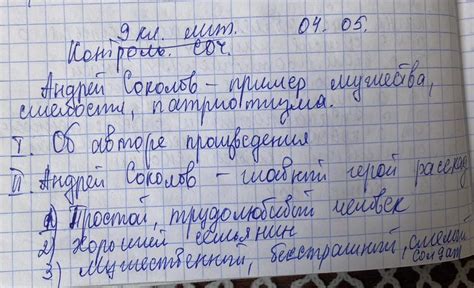 9 кл. лит. 04.05.
Контроль. соч.
Андрей Соколов – пример мужества,
смелости, патриотизма.
I. Об авторе произведения
II Андрей Соколов – главный герой расска
1) Простой, трудолюбивый человек
2) хороший семьянин
3) мужественный, бесстрашный, смелый
солдат